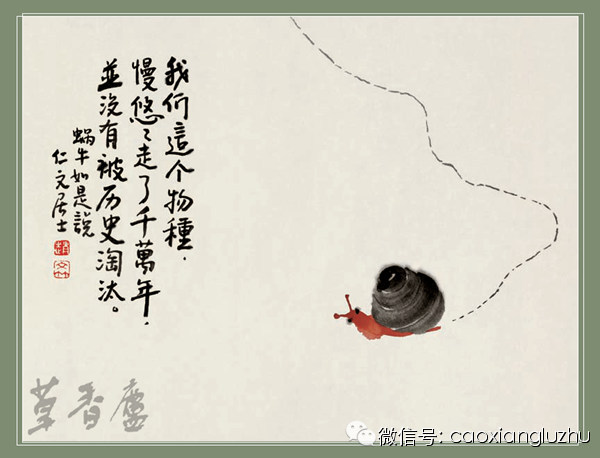 我们這个物種，
慢悠〻走了千萬年，
並沒有被历史淘汰。
蝸牛如是說
仁文居士
草香廬
微信号: caoxiangluzhu